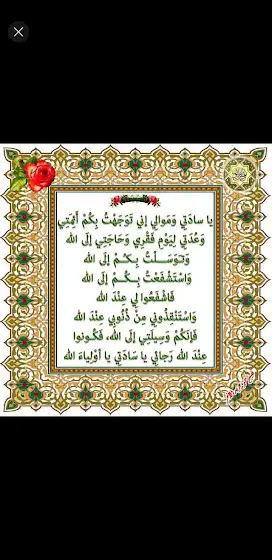 يا سادَتي وَمَوالي إني تَوَجَّهْتُ بِكُمْ أَئِمَّتي
وَعُدَّتي لِيَوْمِ فَقْري وَحَاجَتِي إِلَى الله
وَتَوَسَّلْتُ بِكُمْ إِلَى الله
وَاسْتَشْفَعْتُ بِكُمْ إِلَى الله
فَاشْفَعُوا لِي عِنْدَ الله
وَاسْتَنْقِذُونِي مِنْ ذُنُوبِي عِنْدَ الله
فَإِنَّكُمْ وَسِيلَتِي إِلَى الله، فَكُونوا
عِنْدَ الله رَجائِي يا سَادَتِي يا أوْلِياءَ الله